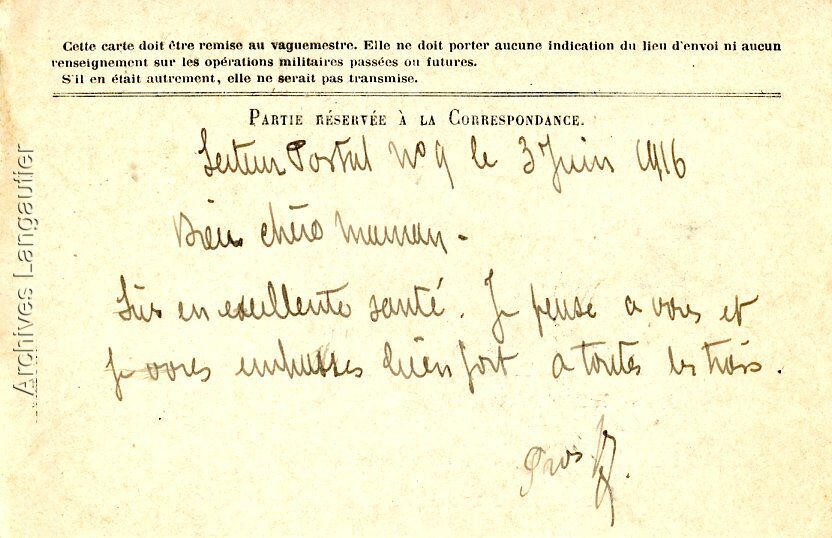 Cette carte doit être remise au vaguemestre. Elle ne doit porter aucune indication du lieu d'envoi ni aucun
renseignement sur les opérations militaires passées ou futures.
S'il en était autrement, elle ne serait pas transmise.
PARTIE RÉSERVÉE À LA CORRESPONDANCE.
Secteur Postal No 9 le 3 Juin 1916
Bien chère Maman -
Suis en excellente santé. Je pense a vous et
Je vous embrasses bien fort a toutes les trois.
Archives Langautier